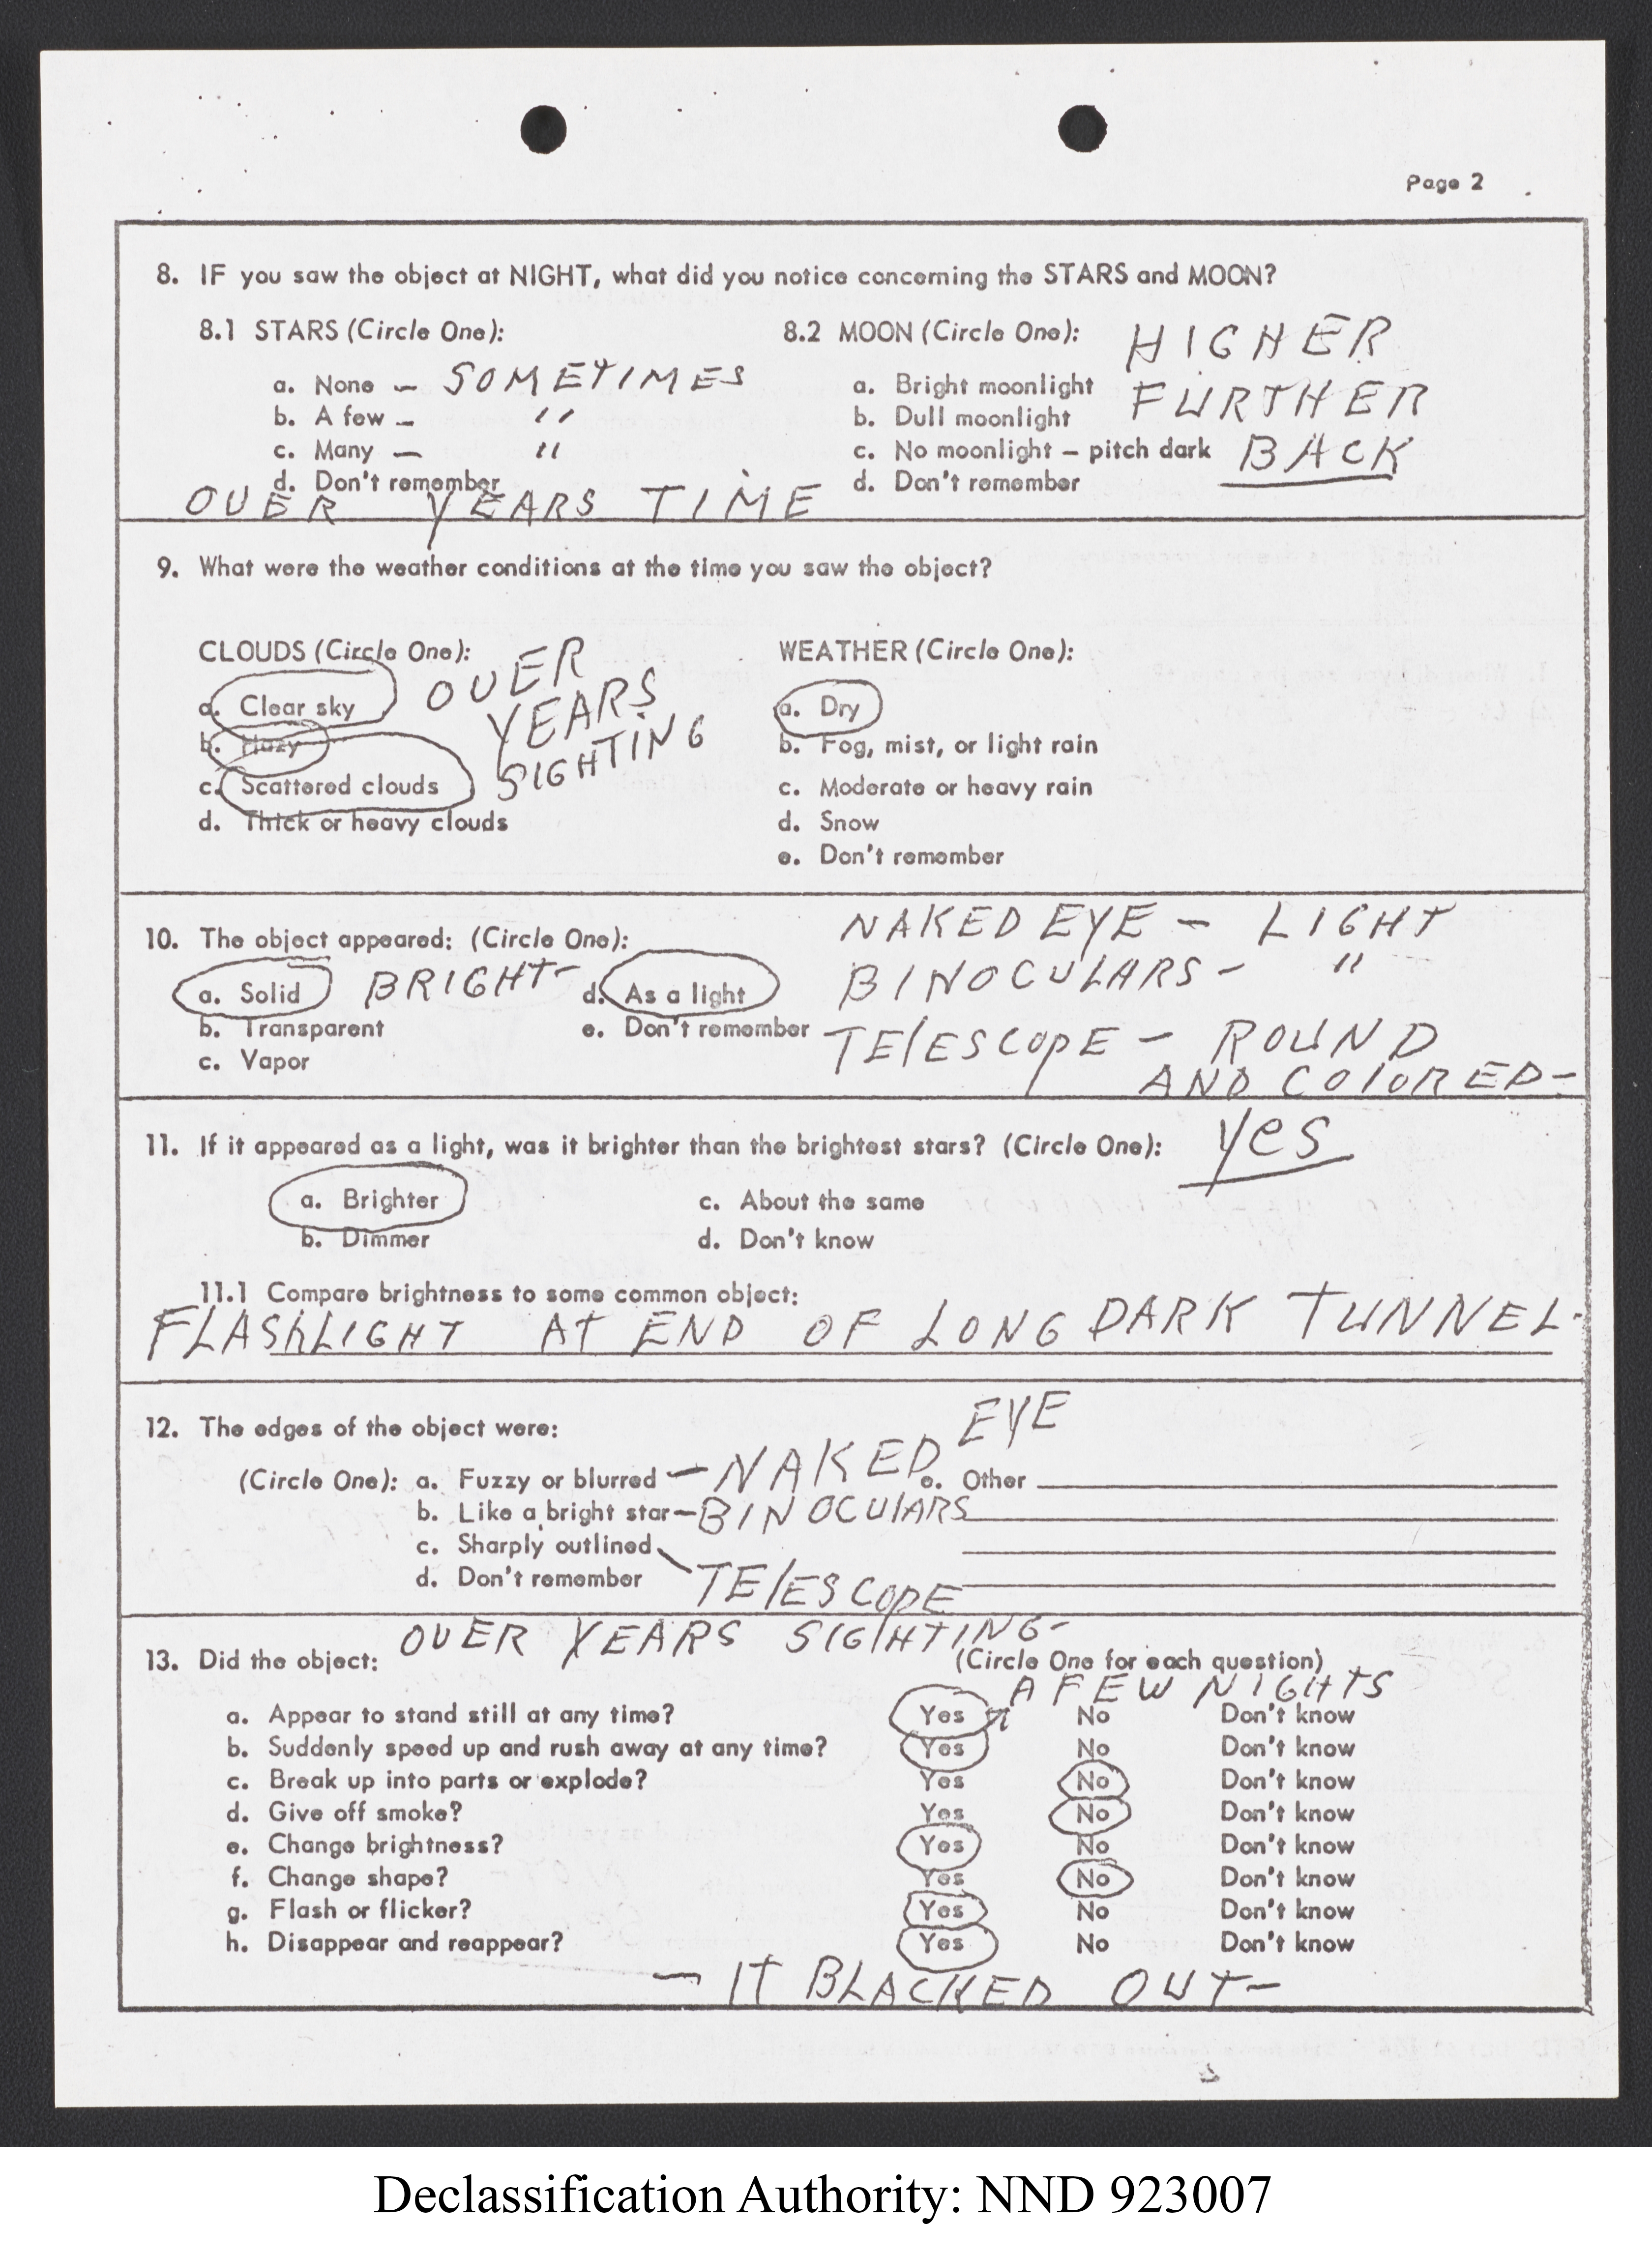 Page 2
8. IF you saw the object at NIGHT, what did you notice concerning the STARS and MOON?
8.1 STARS (Circle One): 8.2 MOON (Circle One): HIGHER
a. None – SOMETIMES a. Bright moonlight FURTHER
b. A few – " b. Dull moonlight
c. Many – " c. No moonlight – pitch dark BACK
d. Don't remember d. Don't remember
OVER YEARS TIME
9. What were the weather conditions at the time you saw the object?
CLOUDS (Circle One): OVER WEATHER (Circle One):
a. Clear sky YEARS a. Dry
b. Hazy SIGHTING b. Fog, mist, or light rain
c. Scattered clouds c. Moderate or heavy rain
d. Thick or heavy clouds d. Snow
e. Don't remember
NAKED EYE – LIGHT
10. The object appeared: (Circle One):
a. Solid BRIGHT – d. As a light BINOCULARS – "
b. Transparent e. Don't remember TElESCOPE – ROUND
c. Vapor AND COlORED –
11. If it appeared as a light, was it brighter than the brightest stars? (Circle One): yes
a. Brighter c. About the same
b. Dimmer d. Don't know
11.1 Compare brightness to some common object:
FLAShLIGHT AT END OF LONG DARK TUNNEL.
12. The edges of the object were: EYE
(Circle One): a. Fuzzy or blurred – NAKED e. Other
b. Like a bright star – BINOCUlARS
c. Sharply outlined
d. Don't remember TElESCOPE
OVER YEARS SIGHTING –
13. Did the object: (Circle One for each question)
A FEW NIGHTS
a. Appear to stand still at any time? Yes No Don't know
b. Suddenly speed up and rush away at any time? Yes No Don't know
c. Break up into parts or explode? Yes No Don't know
d. Give off smoke? Yes No Don't know
e. Change brightness? Yes No Don't know
f. Change shape? Yes No Don't know
g. Flash or flicker? Yes No Don't know
h. Disappear and reappear? Yes No Don't know
– IT BLACKED OUT –
Declassification Authority: NND 923007